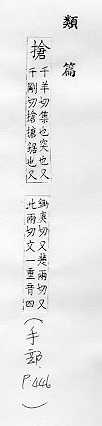 類篇
搶
千羊切集也突也又
千剛切搶搶鋸也又
鋤庚切又楚兩切又
此兩切文一重音四
(手部 P446)